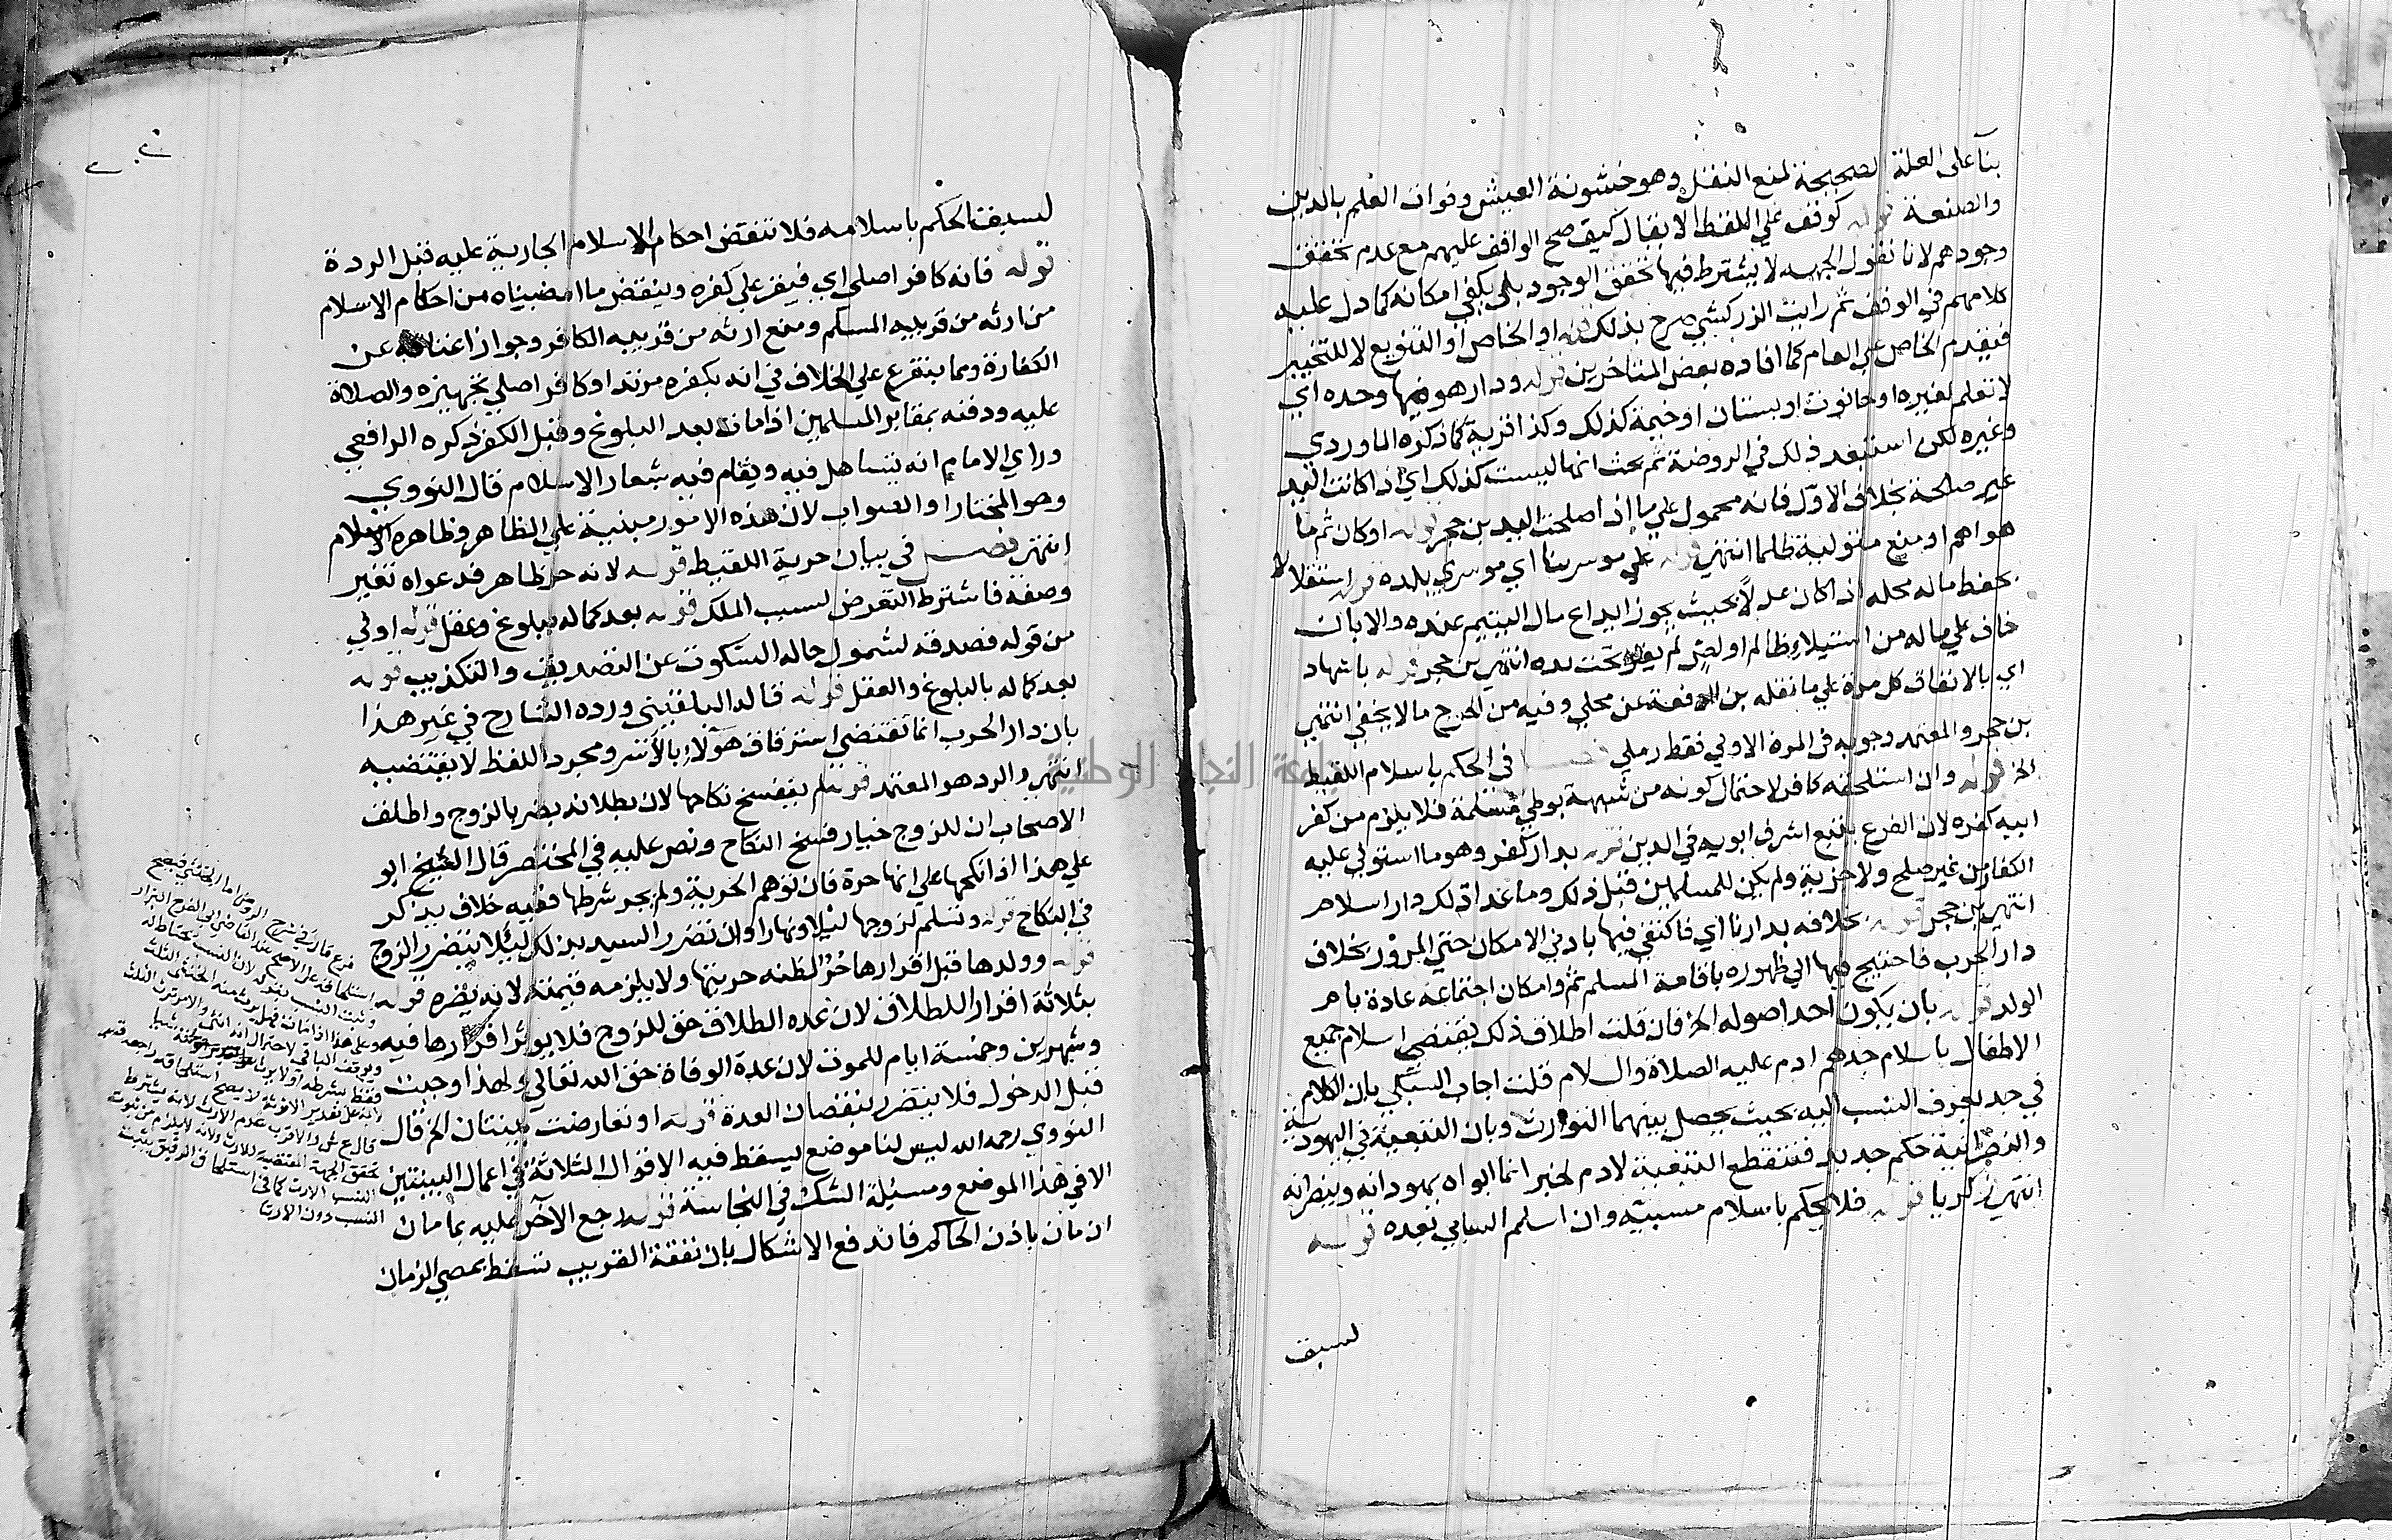 بنآ على العلة الصحيحة لمنع النقل وهو خشونة العيش وفوات العلم بالدين
والصنعة قوله كوقف علي اللقطا لا يقال كيف صح الواقف عليهم مع عدم تحقق
وجودهم لانا نقول الجهه لا يشترط فيها تحقق الوجود بلي يكفي امكانه كما دل عليه
كلامهم في الوقف ثم رايت الزركشي صرح بذلك قوله او الخاص او التنويع لا للتخيير
فيقدم الخاص علي العام كما افاده بعض المتاخرين قوله ودار هو فيها وحده اي
لا تعلم لغيره او حانوت او بستان او خيمة كذلك وكذا قرية كما ذكره الماوردي
وغيره لكن استبعد ذلك في الروضة ثم بحث انها ليست كذلك اي اذا كانت اليد
غير صالحة بخلاف الاول فانه محمول علي ما اذا صلحت اليد بن حجر قوله او كان ثم ما
هو اهم او منع متوليه ظلما انتهي قوله علي موسرينا اي موسري بلده قوله استقلالا
بحفظ ماله محله اذا كان عدلاً بحيث يجوز ايداع مال اليتيم عنده والا بان
خاف علي ماله من استيلاء ظالم او لص لم يقر تحت يده انتهي بن حجر قوله باشهاد
اي بالانفاق كل مرة علي ما نقله بن الرفعة عن محلي وفيه من الحرج ما لا يخفي انتهي
بن حجر والمعتمد وجوبه في المرة الاولي فقط رملي فصل في الحكم باسلام اللقيط
الخ قوله وان استلحقه كافر لاحتمال كونه من شبهة بوطئ مسلمة فلا يلزم من كفر
ابيه كفره لان الفرع يتبع اشرف ابويه في الدين قوله بدار كفر وهو ما استولي عليه
الكفار من غير صلح ولا جزية ولم يكن للمسلمين قبل ذلك وما عدا ذلك دار اسلام
انتهي بن حجر قوله بخلافه بدارنا اي فاكتفي فيها بادني الامكان حتي المرور بخلاف
دار الحرب فاحتيج فيها الي ظهوره باقامة المسلم ثم وامكان اجتماعه عادة بام
الولد قوله بان يكون احد اصوله الخ فان قلت اطلاق ذلك يقتضي اسلام جميع
الاطفال باسلام جدهم ادم عليه الصلاة والسلام قلت اجاب السبكي بان الكلام
في جد يعرف النسب اليه بحيث يحصل بينهما التوارث وبان التبعية في اليهودية
والنصرانية حكم جديد فتنقطع التبعية لادم لخبر انما ابواه يهودانه وينصرانه
انتهي زكريا قوله فلا يحكم باسلام مسبيه وان اسلم السابي بعده قوله
لسبق
لسبق الحكم باسلامه فلا تنقض احكام الاسلام الجارية عليه قبل الردة
قوله فانه كافر اصلي اي فيقر علي كفره وينقض ما امضيناه من احكام الاسلام
من ارثه من قريبه المسلم ومنع ارثه من قريبه الكافر وجواز اعتاقه عن
الكفارة ومما يتفرع علي الخلاف في انه بكفره مرتد او كافر اصلي تجهيزه والصلاة
عليه ودفنه بمقابر المسلمين اذا مات بعد البلوغ وقبل الكفر ذكره الرافعي
وراي الامام انه يتساهل فيه ويقام فيه شعار الاسلام قال النووي
وهو المختار او الصواب لان هذه الامور مبنية علي الظاهر وظاهره الاسلام
انتهي فصل في بيان حرية اللقيط قوله لانه حر ظاهر فدعواه تغير
وصفه فاشترط التعرض لسبب الملك قوله بعد كماله ببلوغ وعقل قوله اولي
من قوله فصدقه لشموله حاله السكوت عن التصديق والتكذيب قوله
بعد كماله بالبلوغ والعقل قوله قاله البلقيني ورده الشارح في غير هذا
بان دار الحرب انما تقتضي استرقاق هؤلاء بالأسر ومجرد اللفظ لا يقتضيه
انتهي والرد هو المعتمد قوله لم ينفسخ نكاحها لان بطلانه يضر بالزوج واطلق
الاصحاب ان للزوج خيار فسخ النكاح ونص عليه في المختصر قال الشيخ ابو
علي هذا اذا نكحها علي انها حرة فان توهم الحرية ولم يجر شرطها ففيه خلاف يذكر
في النكاح قوله وتسلم لزوجها ليلا ونهارا وان تضرر السيد بذلك لئلا يتضرر الزوج
قوله وولدها قبل اقرارها حُرٌ لظنه حريتها ولا يلزمه قيمته لانه يضره قوله
بثلاثة اقراء للطلاق لان عده الطلاق حق للزوج فلا يوثر اقرارها فيه
وشهرين وخمسة ايام للموت لان عدة الوفاة حق الله تعالي ولهذا وجبت
قبل الدخول فلا يتضرر بنقصان العدة قوله او تعارضت بينتان الخ قال
النووي رحمه الله ليس لنا موضع يسقط فيه الاقوال الثلاثة في اعمال البينتين
الا في هذا الموضع ومسئلة الشك في النجاسة قوله رجع الآخر عليه بما مان
ان مان باذن الحاكم فاندفع الاشكال بان نفقة القريب تسقط بمضي الزمان
فرع قال في شرح الروض اما الخنثي فيصح
استلحاقه على الاصح عند القاضي ابي الفرج البزار
ويثبت النسب بقوله لان النسب يحتاط له
وعلى هذا اذا مات فهل يرث منه الخنثى الثلث
ويوقف الباقي لاحتمال انه انثى
استلحاقه
قال ع ش والاقرب عدم الارث لانه يشترط
تحقق الجهة المقتضية للارث ولانه لا يلزم من ثبوت
النسب الارث كما في استلحاق الرقيق يثبت
النسب دون الارث
جامعة النجاح الوطنية